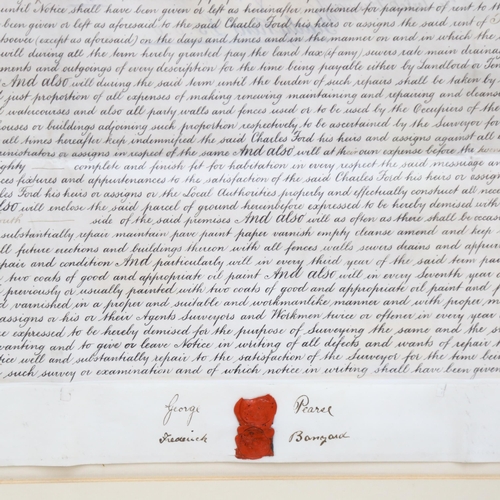 until Notice shall have been given or left as hereinafter mentioned for payment of rent to th
been given or left as aforesaid to the said Charles Ford his heirs or assigns the said rent of
(except as aforesaid) on the days and times and in the manner on and in which the
will during all the term hereby granted pay the land tax (if any) sewers rate main drain
ments and outgoings of every description for the time being payable either by Landlord or Ten
And also will during the said term until the burden of such repairs shall be taken by
just proportion of all expenses of making renewing maintaining and repairing and cleans
watercourses and also all party walls and fences used or to be used by the Occupiers of the
houses or buildings adjoining such proportion respectively to be ascertained by the Surveyor for
all times hereafter keep indemnified the said Charles Ford his heirs and assigns against all
ministrators or assigns in respect of the same And also will at own expense before the
eighty complete and finish fit for habitation in every respect the said messuage an
ces fixtures and appurtenances to the satisfaction of the said Charles Ford his heirs or assign
les Ford his heirs or assigns or the Local Authorities properly and effectually construct all nec
also will enclose the said parcel of ground hereinbefore expressed to be hereby demised with
side of the said premises And also will as often as there shall be occas
substantially repair maintain pave paint paper varnish empty cleanse amend and keep
all future erections and buildings thereon with all fences walls sewers drains and appur
epair and condition And particularly will in every third year of the said term pain
two coats of good and appropriate oil paint And also will in every Seventh year
previously or usually painted with two coats of good and appropriate oil paint and p
d varnished in a proper and suitable and workmanlike manner and with proper m
assigns or his or their Agents Surveyors and Workmen twice or oftener in every year
re expressed to be hereby demised for the purpose of Surveying the same and the
wanting and to give or leave Notice in writing of all defects and wants of repair
tice will and substantially repair to the satisfaction of the Surveyor for the time bein
such survey or examination and of which notice in writing shall have been given
George Pearse
Frederick Bangard